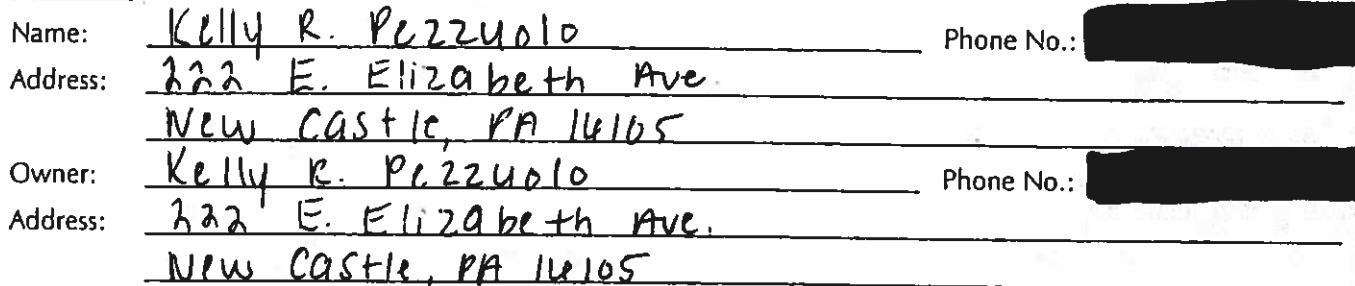 Name: Kelly R. Pezzuolo Phone No.:
Address: 222 E. Elizabeth Ave
New Castle, PA 16105
Owner: Kelly R. Pezzuolo Phone No.:
Address: 222 E. Elizabeth Ave.
New Castle, PA 16105